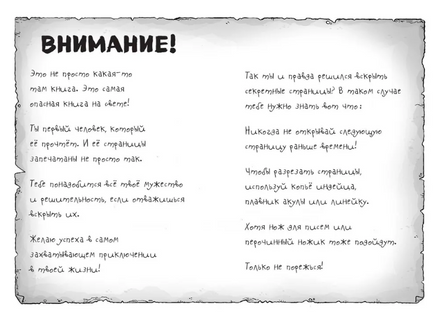 ВНИМАНИЕ!
Это не просто какая-то
там книга. Это самая
опасная книга на свете!
Ты первый человек, который
её прочтёт. И её страницы
запечатаны не просто так.
Тебе понадобится всё твоё мужество
и решительность, если отважишься
вскрыть их.
Желаю успеха в самом
захватывающем приключении
в твоей жизни!
Так ты и правда решился вскрыть
секретные страницы? В таком случае
тебе нужно знать вот что:
Никогда не открывай следующую
страницу раньше времени!
Чтобы разрезать страницы,
используй копьё индейца,
плавник акулы или линейку.
Хотя нож для писем или
перочинный ножик тоже подойдут.
Только не порежься!